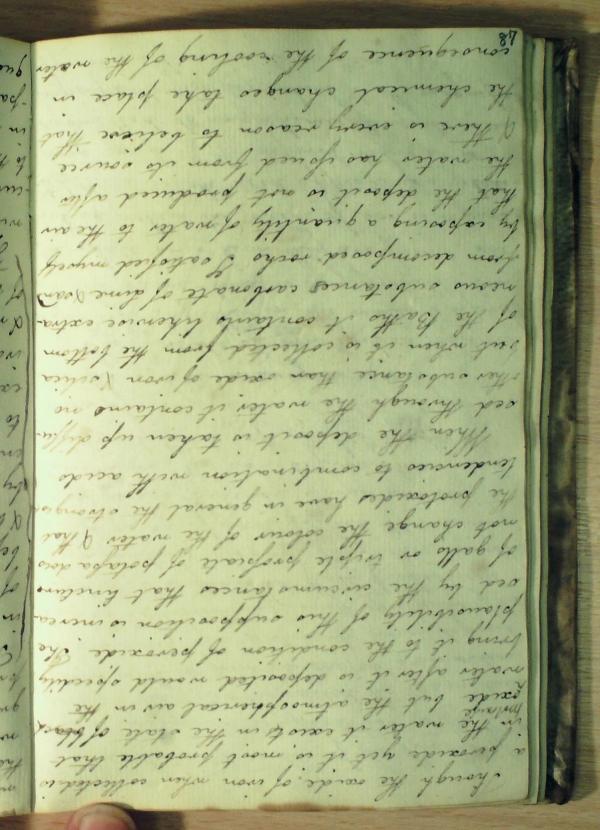 though the oxide of iron when collected is
a peroxide yet it is most probable that
in the water it exists in the state of black
protoxide but the atmospherical air in the
water after it is deposited would speedily
bring it to the condition of peroxide. The
plausibility of this supposition is increa
sed by the circumstances that tincture
of galls or triple prussiate of potassa does
not change the colour of the water & that
the protoxides have in general the strongest
tendencies to combination with acids
When the deposit is taken up diffu
sed through the water it contains no
other substance than oxide of iron & silica
but when it is collected from the bottom
of the Baths it contains likewise extra
neous substances carbonate of lime & sand
from decomposed rocks I satisfied myself
by exposing a quantity of water to the air
that the deposit is not produced after
the water has issued from its source
& there is every reason to believe that
the chemical changes take place in
consequence of the cooling of the water
48